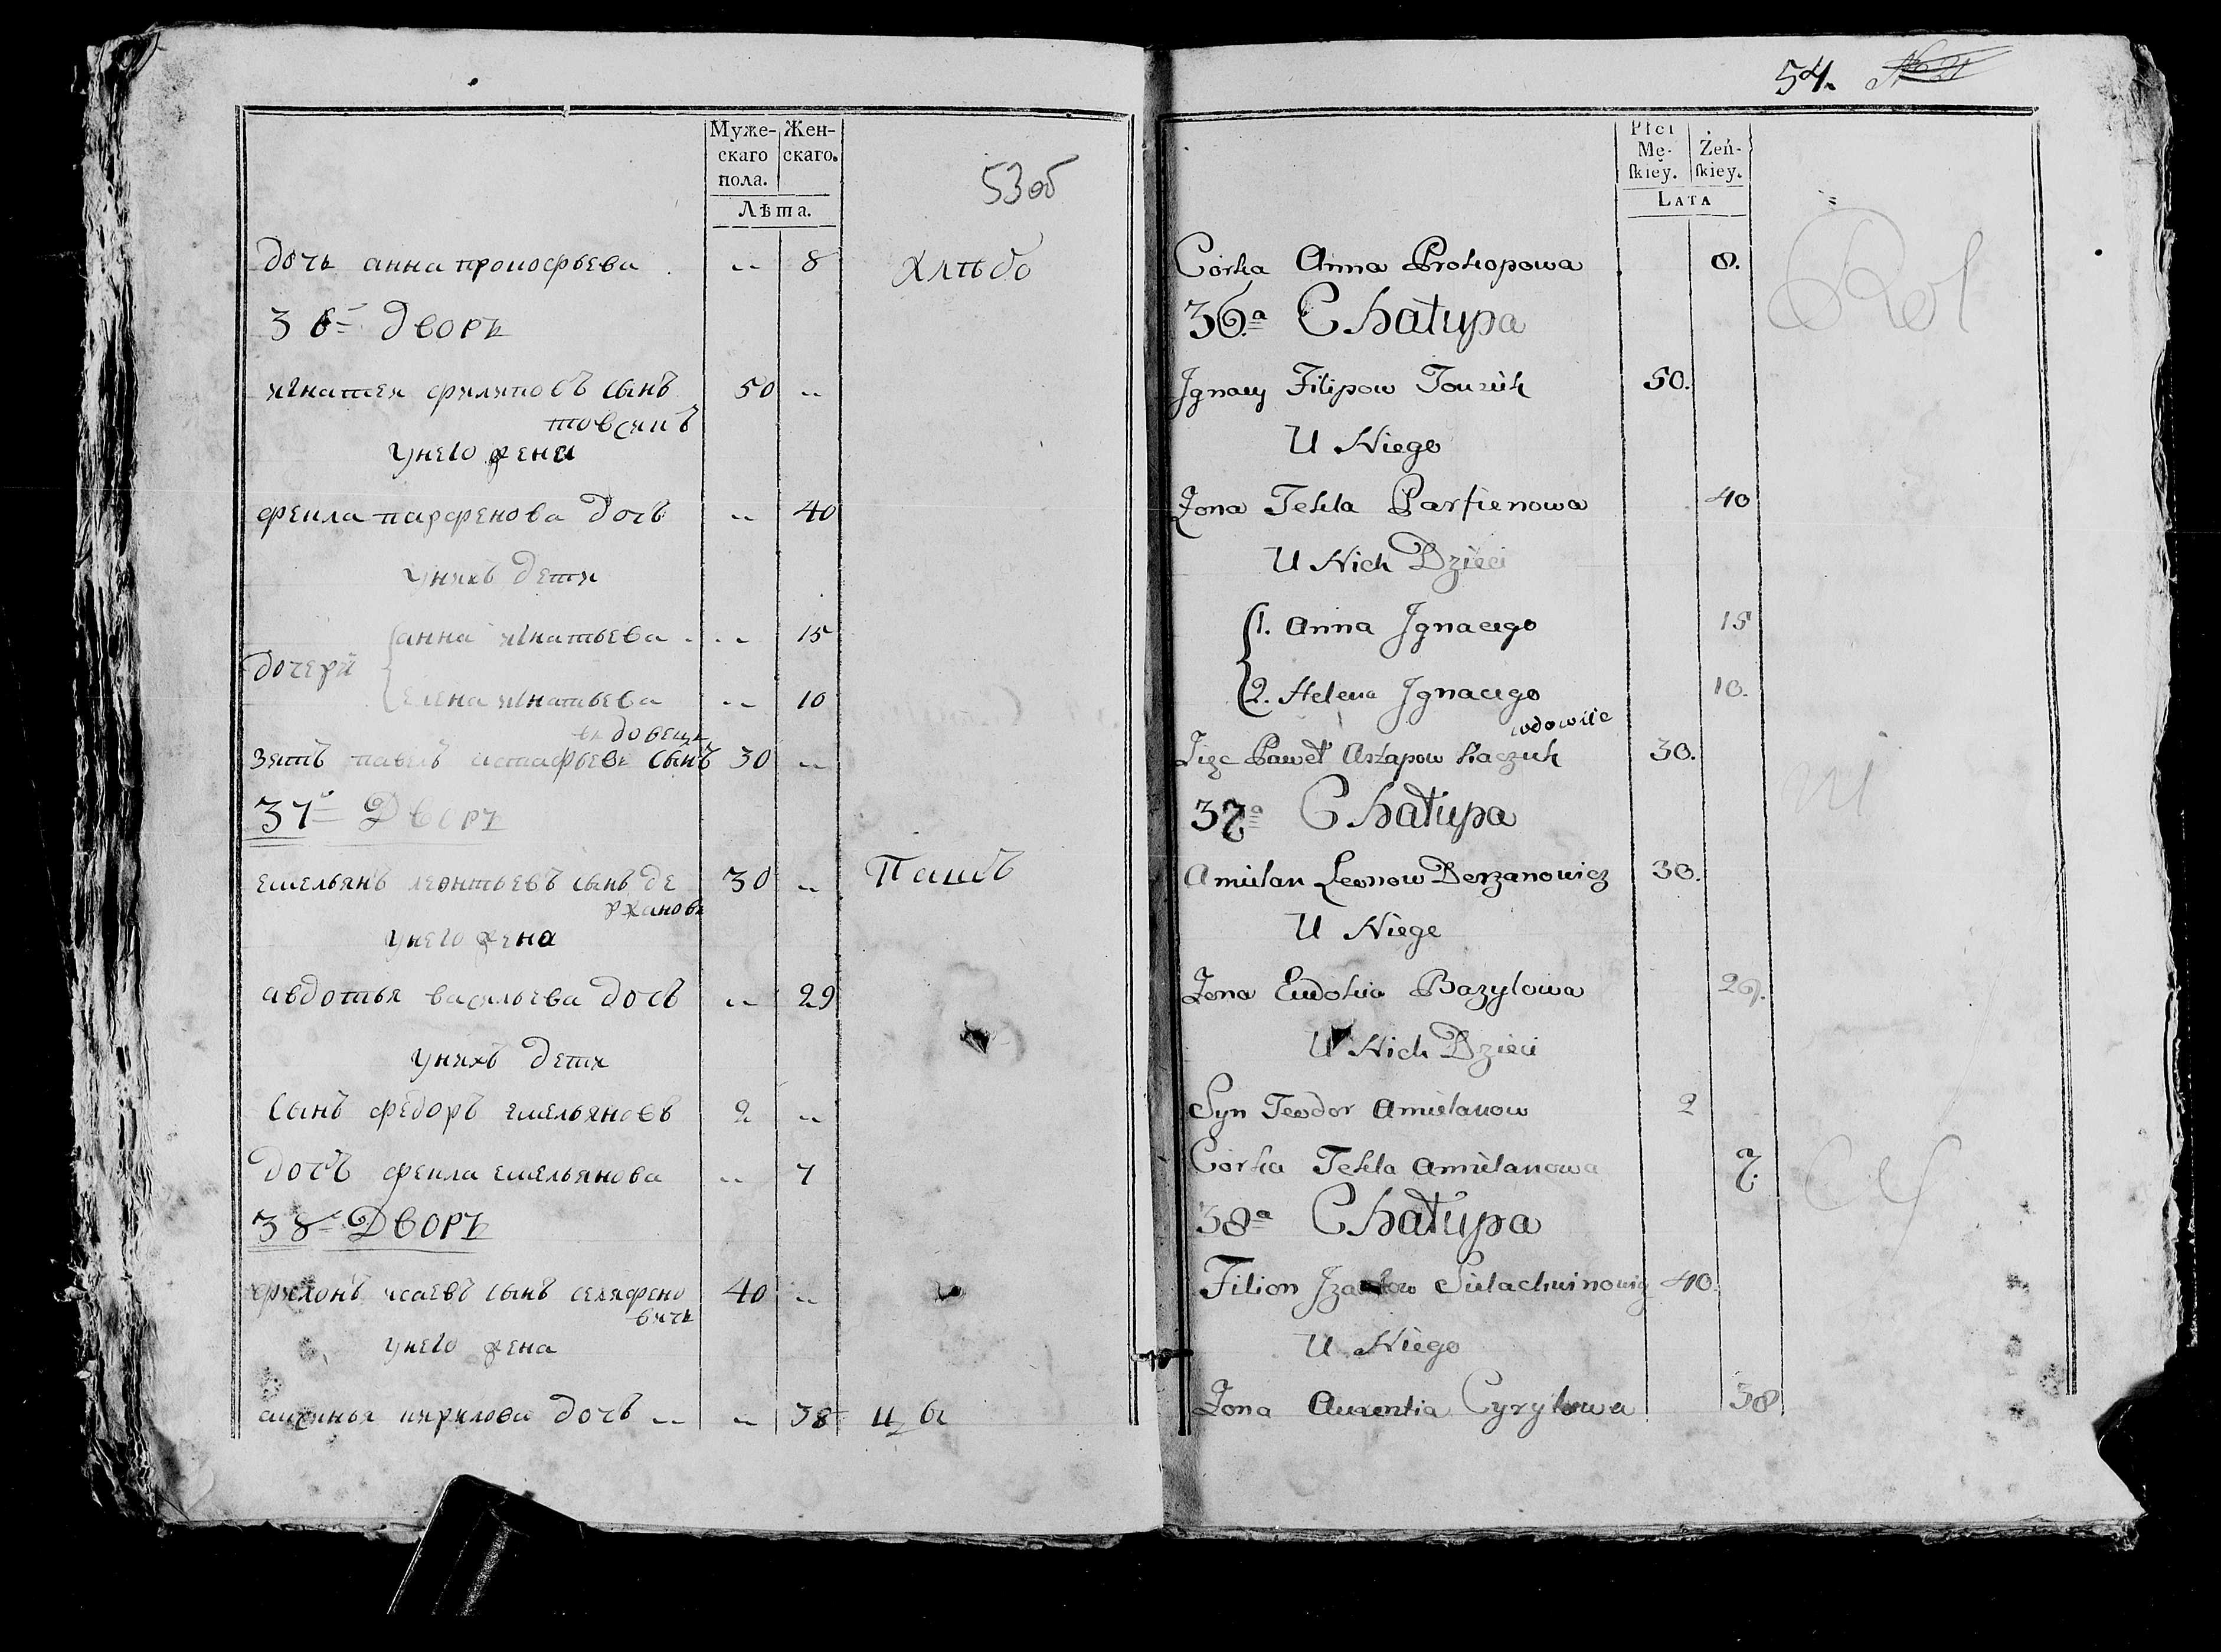 Муже-
скаго
пола.
Жен-
скаго.
Лѣта.
53об
дочь анна прокофьева -- 8
хлѣбо
36й дворъ
игнатеи филиповъ сынъ 50 --
товсикъ
унего жена
фекла парфенова дочь -- 40
унихъ дети
анна игнатьева -- 15
дочери
елена игнатьева -- 10
вдовецъ
зять павелъ астафьевъ сынъ 30 --
37й Дворъ
емельянъ леонтьевъ сынъ де 30 --
ржановъ
Пашъ
унего жена
авдотья васильева дочь -- 29
унихъ дети
сынъ федоръ емельяновъ 2 --
дочь фекла емельянова -- 7
38й Дворъ
филонъ исаевъ сынъ селяфено 40 --
вичь
унего жена
кирилова дочь -- -- 38
54.
Płci
Mę-
ſkiey.
Żeń-
ſkiey.
LATA
Corka Anna Prokopowa 8.
36.a Chałupa
Jgnacy Filipow Touzik 50.
U Niego
Zona Tekla Parfienowa 40
U Nich Dzieci
1. Anna Jgnacego 15
2. Helena Jgnacego 10.
wdowiec
Zięc Paweł Astapow 30.
37a Chałupa
Amilan Leonow Derzanowicz 30.
U Niego
Zona Eudokia Bazylowa 29.
U Nich Dzieci
Syn Teodor Amielanow 2
Corka Tekla Amielanowa 7.
38a Chałupa
Filion 40.
U Niego
Zona Auxentia Cyryłowa 38